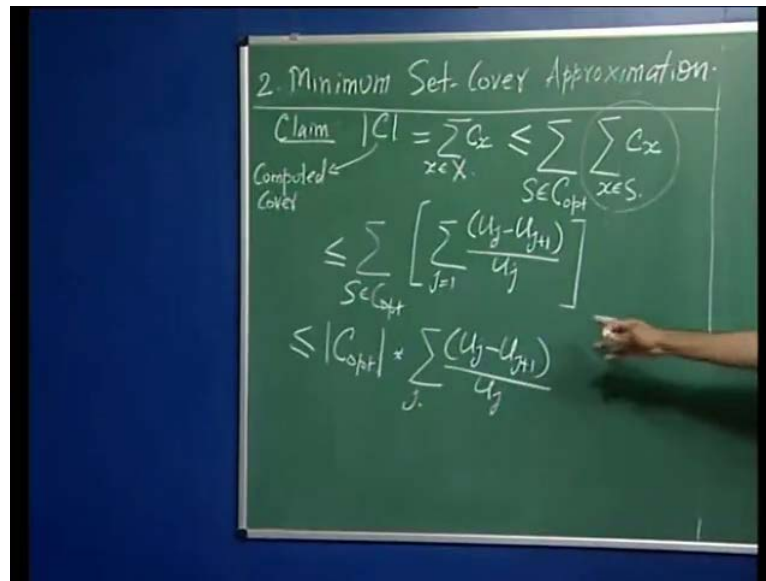 2. Minimum Set-Cover Approximation.
Claim |C| = ∑_{x∈X.} C_x ≤ ∑_{S∈C_opt} ∑_{x∈S.} C_x
Computed
Cover
≤ ∑_{S∈C_opt} [ ∑_{j=1} (U_j - U_{j+1}) / U_j ]
≤ |C_opt| * ∑_{j.} (U_j - U_{j+1}) / U_j